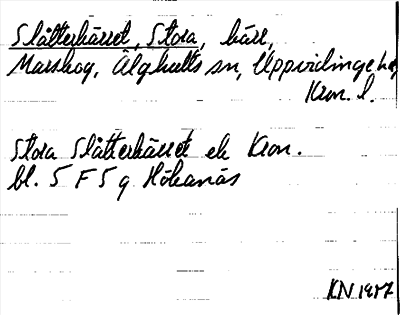 Slåtterkärret, Stora, kärr,
Marskog, Älghults sn, Uppvidinge hd,
Kron. l.
Stora Slåtterkärret ek Kron.
bl. 5 F 5 g Hökanäs
KN 1977